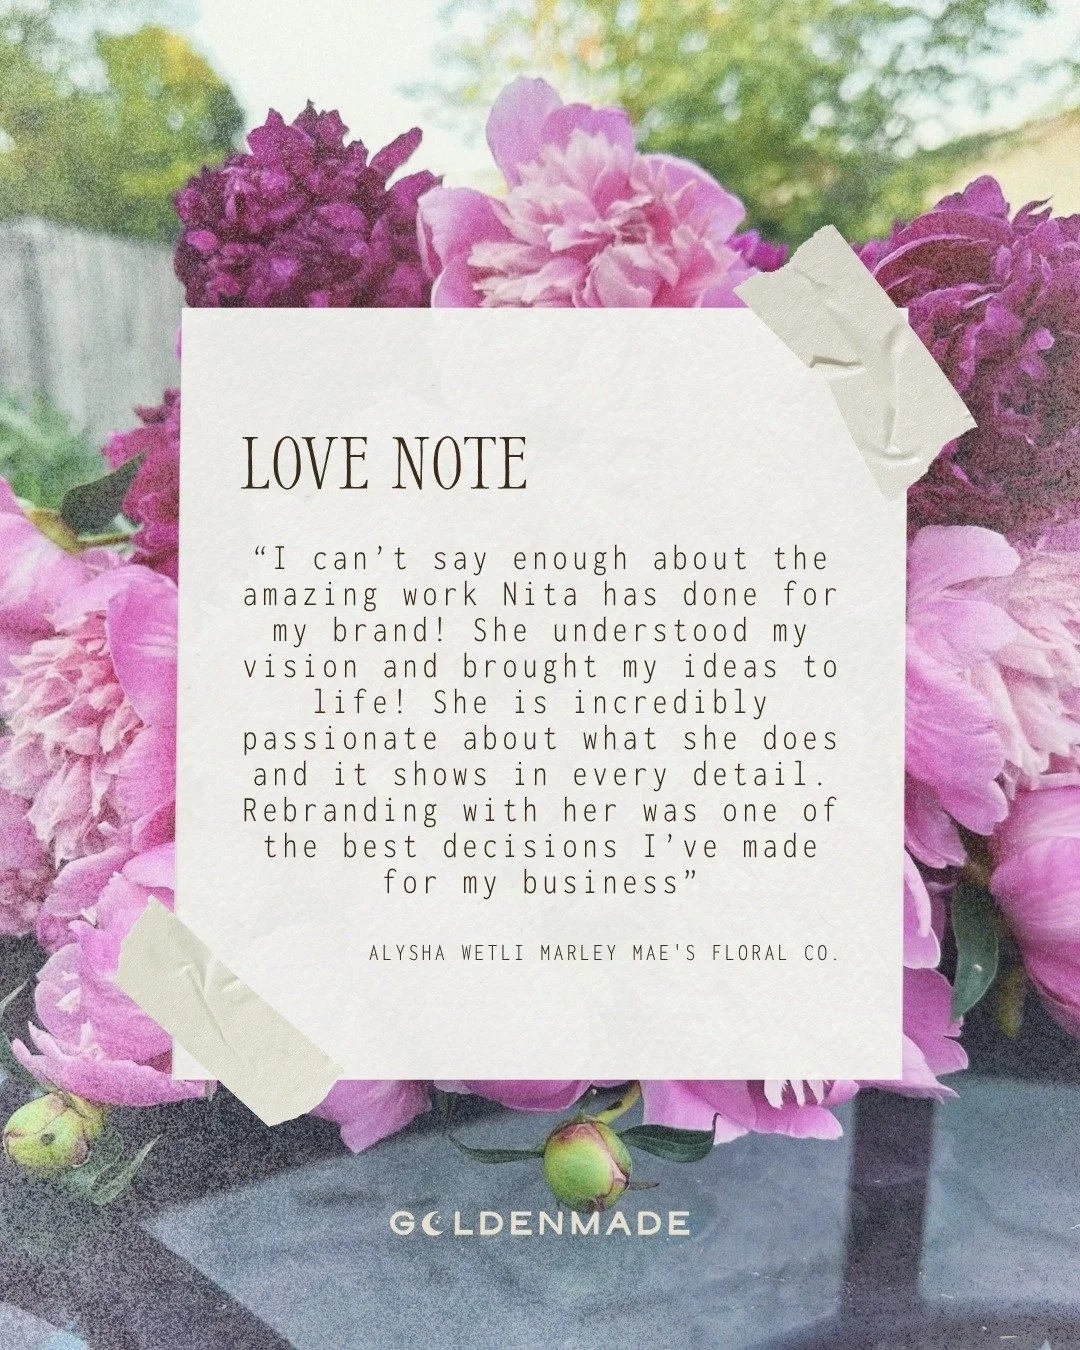 LOVE NOTE
“I can’t say enough about the
amazing work Nita has done for
my brand! She understood my
vision and brought my ideas to
life! She is incredibly
passionate about what she does
and it shows in every detail.
Rebranding with her was one of
the best decisions I’ve made
for my business”
ALYSHA WETLI MARLEY MAE'S FLORAL CO.
GOLDENMADE